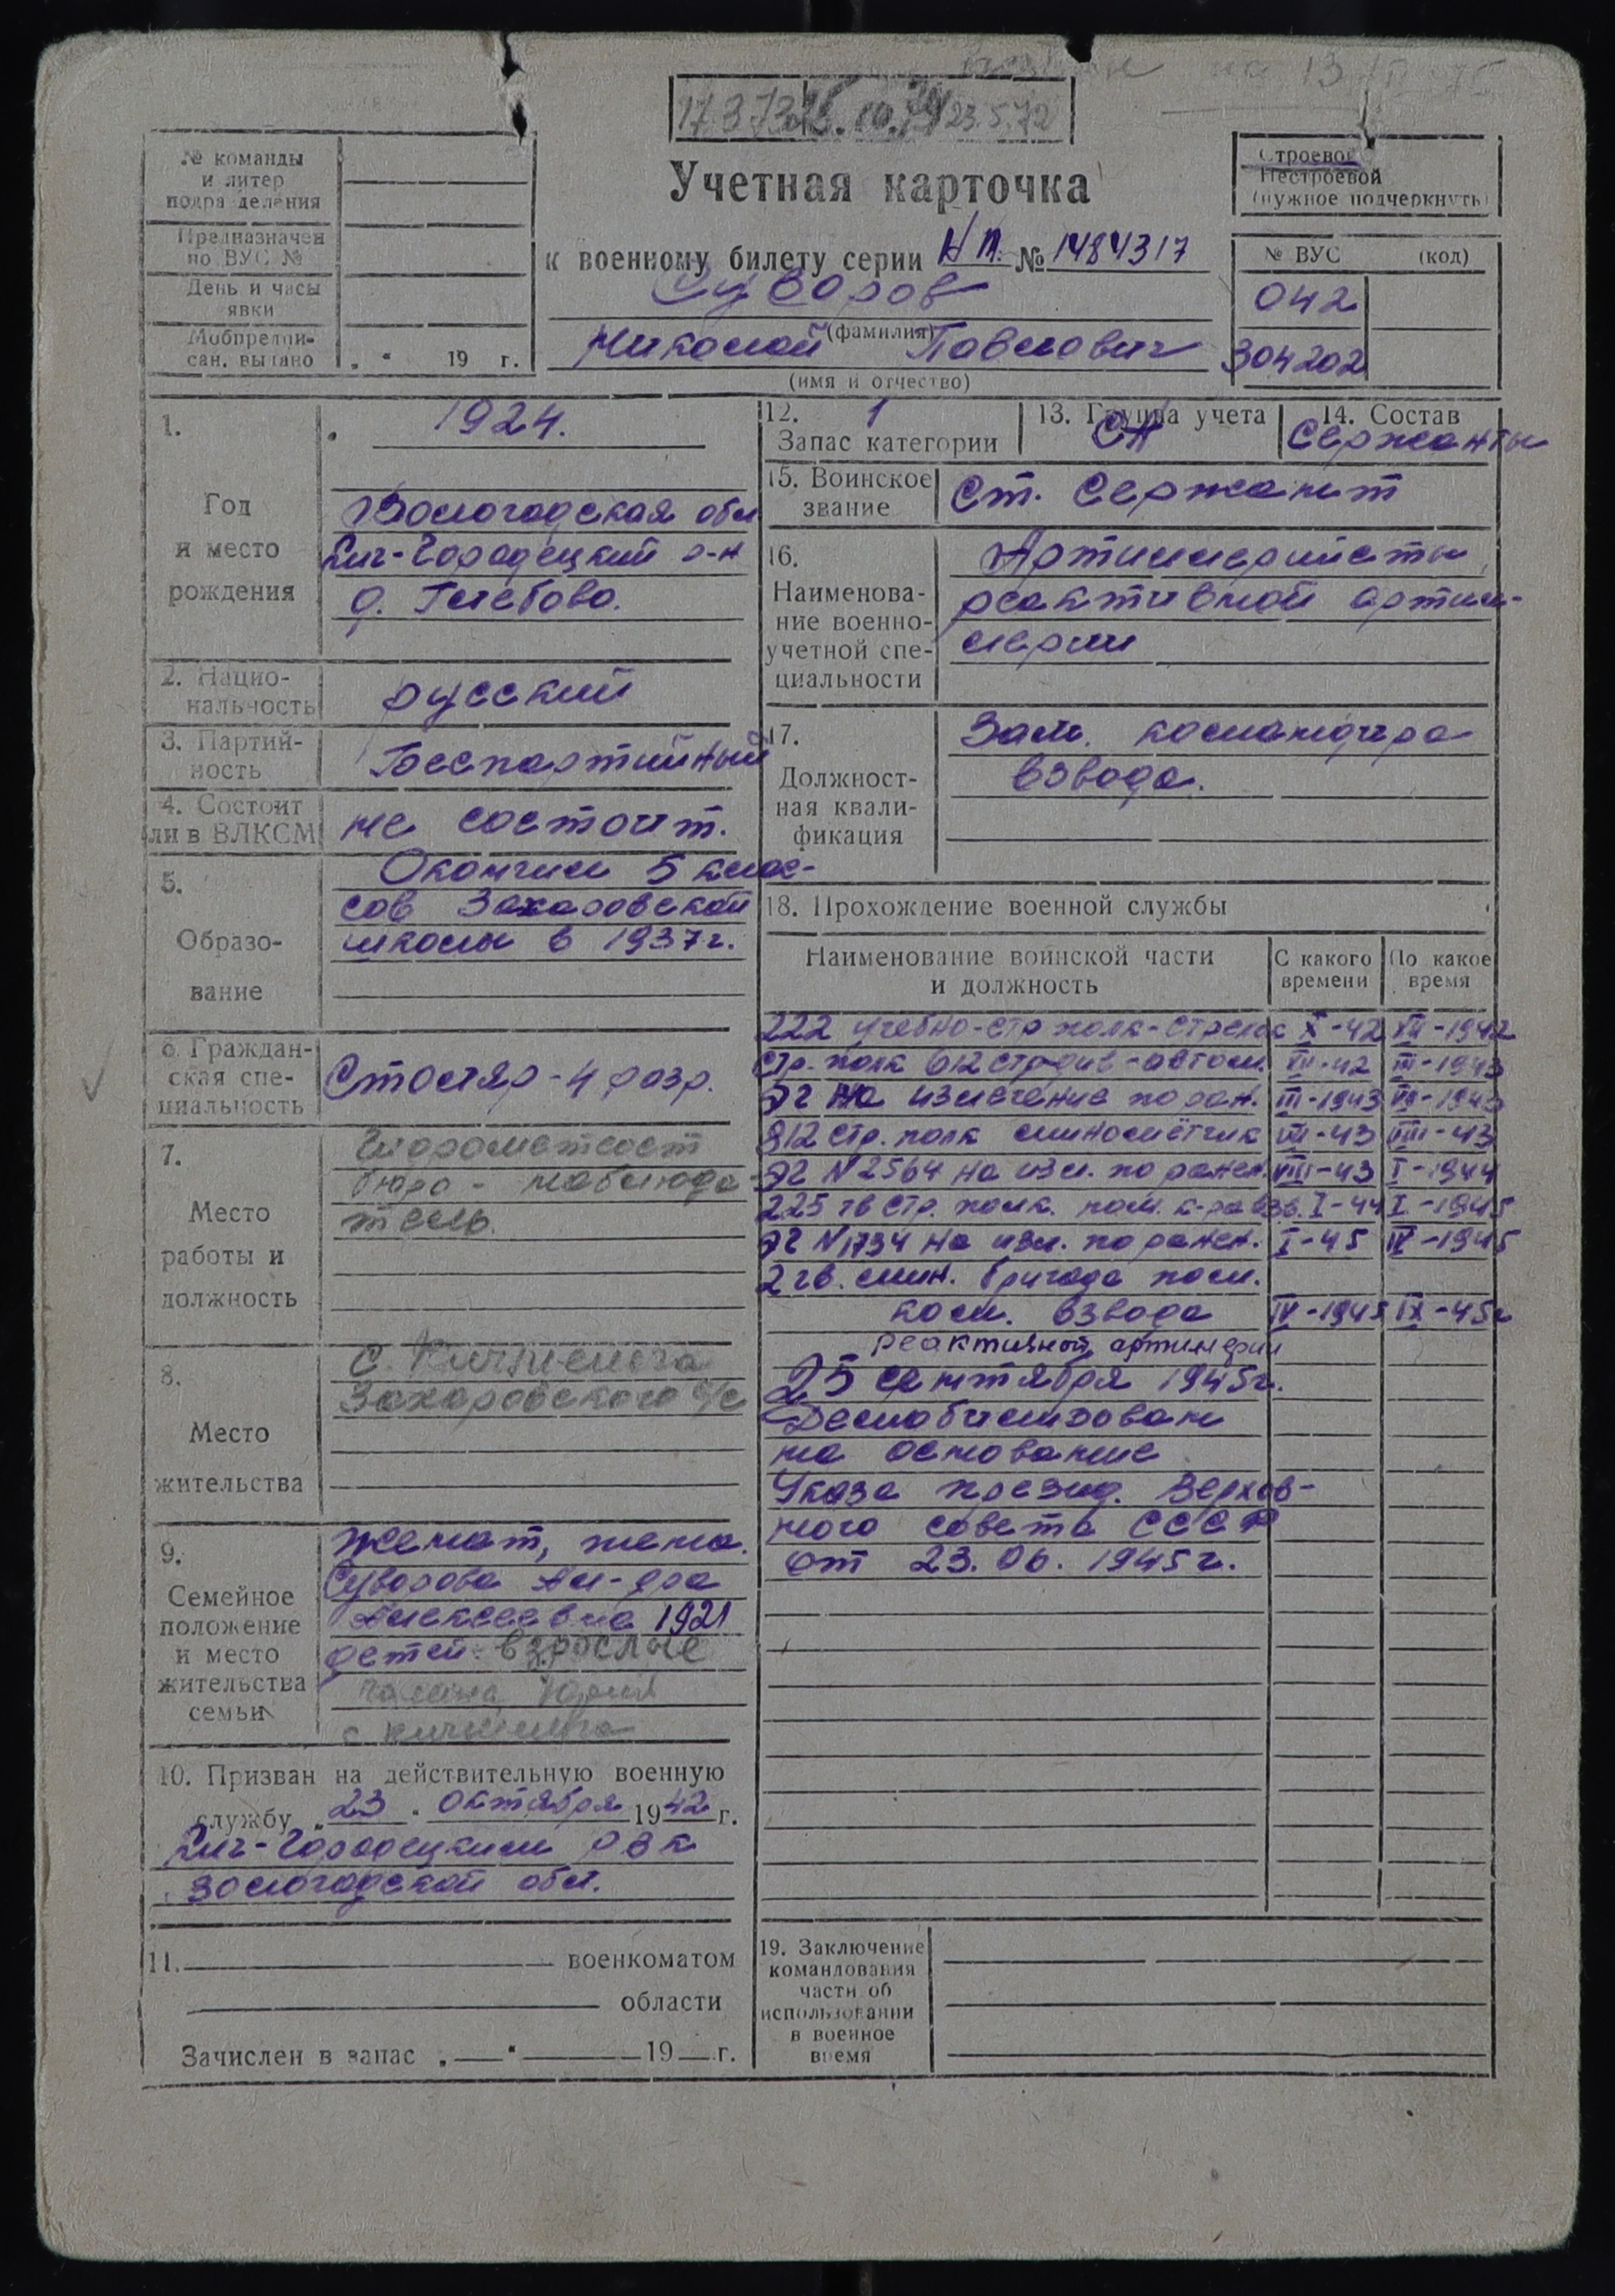 23.5.72
Учетная карточка
к военному билету серии НП. № 1484317
Суворов
(фамилия)
Николай Павлович
(имя и отчество)
№ команды
и литер
подразделения
Предназначен
по ВУС №
День и часы
явки
Мобпредпи-
сан. выдано „ “ 19 г.
Строевой
Нестроевой
(нужное подчеркнуть)
№ ВУС (код)
042
304202
1.
Год
и место
рождения
1924.
Вологодская обл
Кич-Городецкий р-н
д. Глебово.
2. Нацио-
нальность
русский
3. Партий-
ность
Беспартийный
4. Состоит
ли в ВЛКСМ
не состоит.
5.
Образо-
вание
Окончил 5 клас-
сов Захаровской
школы в 1937г.
6. Граждан-
ская спе-
циальность
Столяр - 4 разр.
7.
Место
работы и
должность
бюро - наблюда-
тель.
8.
Место
жительства
с. Кичменга
Захаровского с/с
9.
Семейное
положение
и место
жительства
семьи
Женат, жена.
Суворова Ал-дра
Алексеевна 1921
детей взрослые
с Кичменга
10. Призван на действительную военную
службу „23“ октября 1942 г.
Кич-Городецким РВК
Вологодской обл.
11. военкоматом
области
Зачислен в запас „—“ 19 г.
12. 1
Запас категории
13. Группа учета
СА
14. Состав
Сержанты
15. Воинское
звание
Ст. Сержант
16.
Наименова-
ние военно-
учетной спе-
циальности
Артиллеристы
реактивной артил-
лерии
17.
Должност-
ная квали-
фикация
Зам. командира
взвода.
18. Прохождение военной службы
Наименование воинской части
и должность
С какого
времени
По какое
время
222 учебно-стр полк-стрелок X-42 XII-1942
Стр. полк 612 стр див-автом. XII-42 III-1943
ЭГ на излечение по ран. III-1943 VII-1943
812 стр. полк миномётчик VII-43 VIII-43
ЭГ N2564 на изл. по ранен. VIII-43 I-1944
225 гв стр. полк. пом. к-ра взв. I-44 I-1945
ЭГ N1734 на изл. по ранен. I-45 IV-1945
2 гв. мин. бригада пом.
ком. взвода IV-1945 IX-45г
реактивной артилерии
25 сентября 1945г.
Демобилизован
на основание
Указа презид. Верхов-
ного совета СССР
от 23.06.1945г.
19. Заключение
командования
части об
использовании
в военное
время